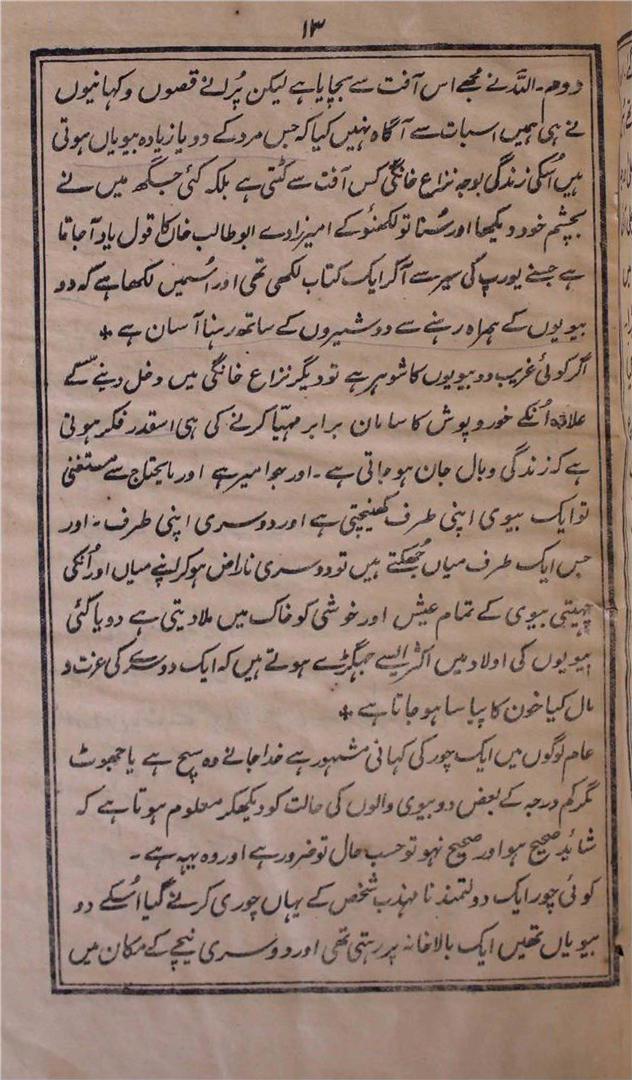 ۱۳
دوم۔ اللہ نے مجھے اس آفت سے بچایا ہے لیکن پُرانے قصوں و کہانیوں
نے ہی ہمیں اسبات سے آگاہ نہیں کیا کہ جس مرد کے دو یا زیادہ بیویاں ہوتی
ہیں اُسکی زندگی بوجہ نزاع خانگی کس آفت سے کٹتی ہے بلکہ کئی جگھ میں نے
بچشم خود دیکھا اور سُنا تو لکھنؤ کے امیرزادے ابو طالب خاں کا قول یاد آجاتا
ہے جسنے یورپ کی سیر سے آکر ایک کتاب لکھی تھی اور اسُمیں لکھا ہے کہ دو
بیویوں کے ہمراہ رہنے سے دو شیروں کے ساتھ رہنا آسان ہے *
اگر کوئی غریب دو بیویوں کا شوہر ہے تو دیگر نزاع خانگی میں دخل دینے کے
علاوہ اُنکے خور و پوش کا سامان برابر مہیّا کرنے کی ہی اسقدر فکر ہوتی
ہے کہ زندگی وبال جان ہو جاتی ہے۔ اور جو امیر ہے اور مایحتاج سے مستغنی
تو ایک بیوی اپنی طرف کھینچتی ہے اور دوسری اپنی طرف۔ اور
جس ایک طرف میاں جُھکتے ہیں تو دوسری ناراض ہو کر اپنے میاں اور اُنکی
چہیتی بیوی کے تمام عیش اور خوشی کو خاک میں ملا دیتی ہے دو یا کئی
بیویوں کی اولاد میں اکثر ایسے جہگڑے ہوتے ہیں کہ ایک دوسرے کی عزت و
مال کیا خون کا پیاسا ہو جاتا ہے *
عام لوگوں میں ایک چور کی کہانی مشہور ہے خدا جانے وہ سچ ہے یا جھوٹ
مگر کم درجہ کے بعض دو بیوی والوں کی حالت کو دیکھکر معلوم ہوتا ہے کہ
شائد صحیح ہو اور صحیح نہو تو حسب حال تو ضرور ہے اور وہ یہہ ہے۔
کوئی چور ایک دولتمند نا مہذب شخص کے یہاں چوری کرنے گیا اسُکے دو
بیویاں تھیں ایک بالا خانہ پر رہتی تھی اور دوسری نیچے کے مکان میں